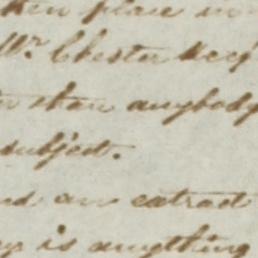 ken place in
Mr Chester Keep
r than anybody
subject.
nd an extract
ay is anything